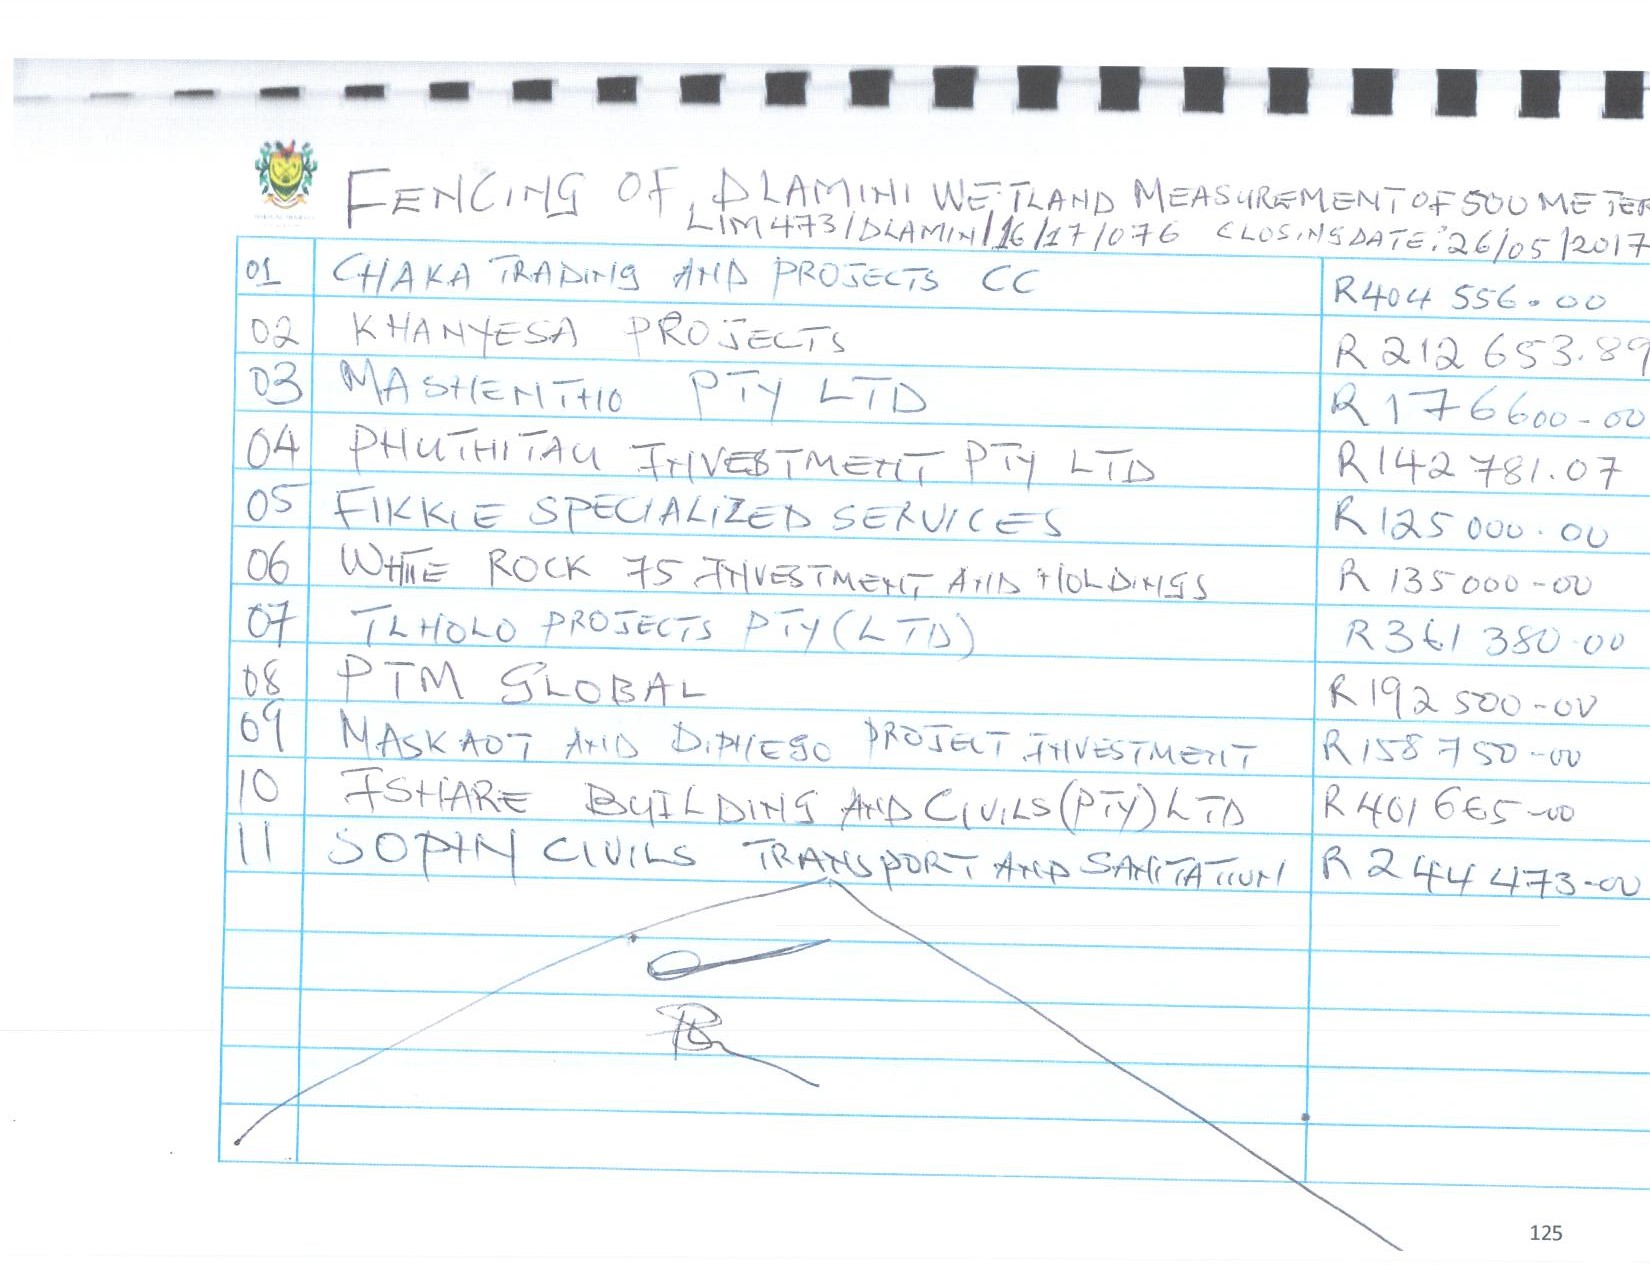 FENCING OF DLAMINI WETLAND MEASUREMENT OF 500 METER
LIM473/DLAMINI/16/17/076 CLOSING DATE: 26/05/2017
01 CHAKA TRADING AND PROJECTS CC R404 556.00
02 KHANYESA PROJECTS R 212 653.89
03 MASHENTHO PTY LTD R 176600-00
04 PHUTHITAU INVESTMENT PTY LTD R142 781.07
05 FIKKIE SPECIALIZED SERVICES R125 000.00
06 WHITE ROCK 75 INVESTMENT AND HOLDINGS R 135000-00
07 TLHOLO PROJECTS PTY (LTD) R361 380.00
08 PTM GLOBAL R192 500-00
09 MASKAOT AND DIPHEGO PROJECT INVESTMENT R158 750-00
10 ISHARE BUILDING AND CIVILS (PTY) LTD R 401 665-00
11 SOPHN CIVILS TRANSPORT AND SANITATION R 244 473-00
125